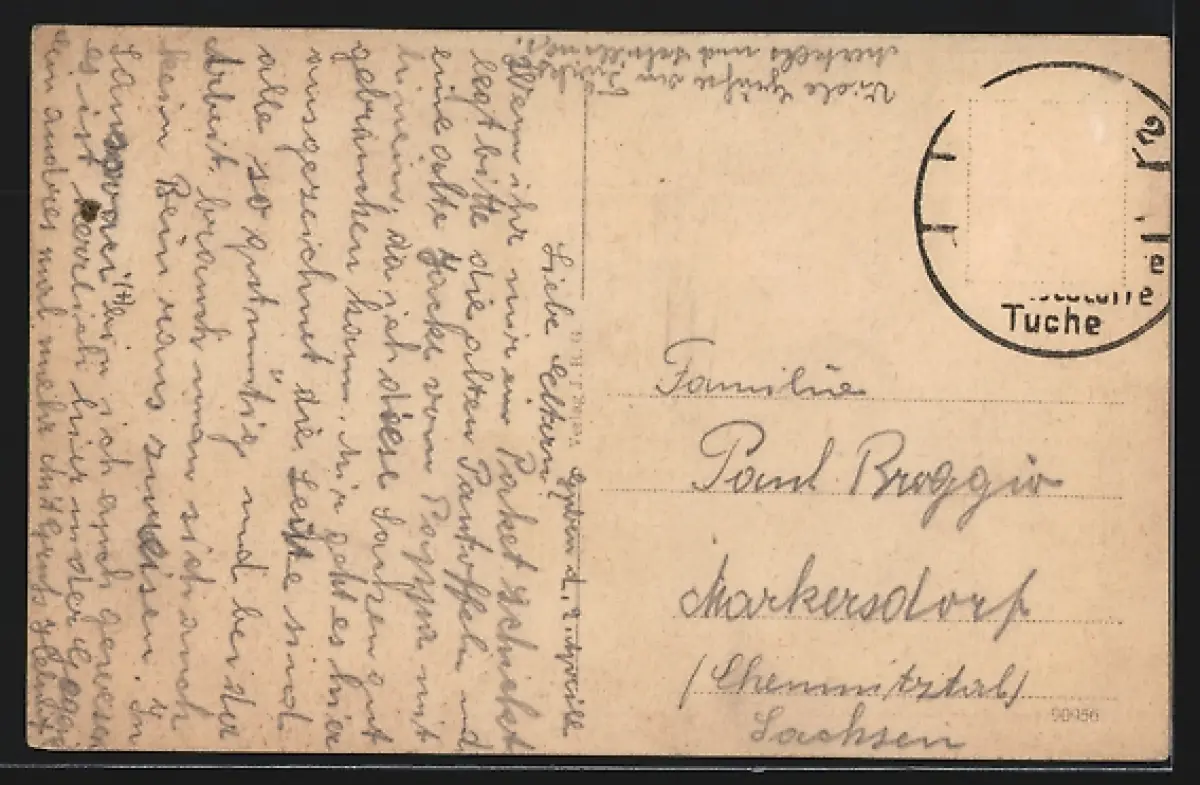 Liebe Eltern!
Wenn ihr mir ein Packet schickt
legt bitte die alten Pantoffeln und
eine alte Jacke vom Pappa mit
hinein, da ich diese Sachen gut
gebrauchen kann. Mir geht es hier
ausgezeichnet die Leute sind
alle so gutmütig und bei der
Arbeit braucht man sich auch
kein Bein raus zureisen. In
bin ich auch gewesen
es ist herrlich hier in der Gegend
ein andres mal mehr
Viele Grüße an
und
Familie
Paul Broggio
Markersdorf
(Chemnitztal)
Sachsen
90956
Tuche